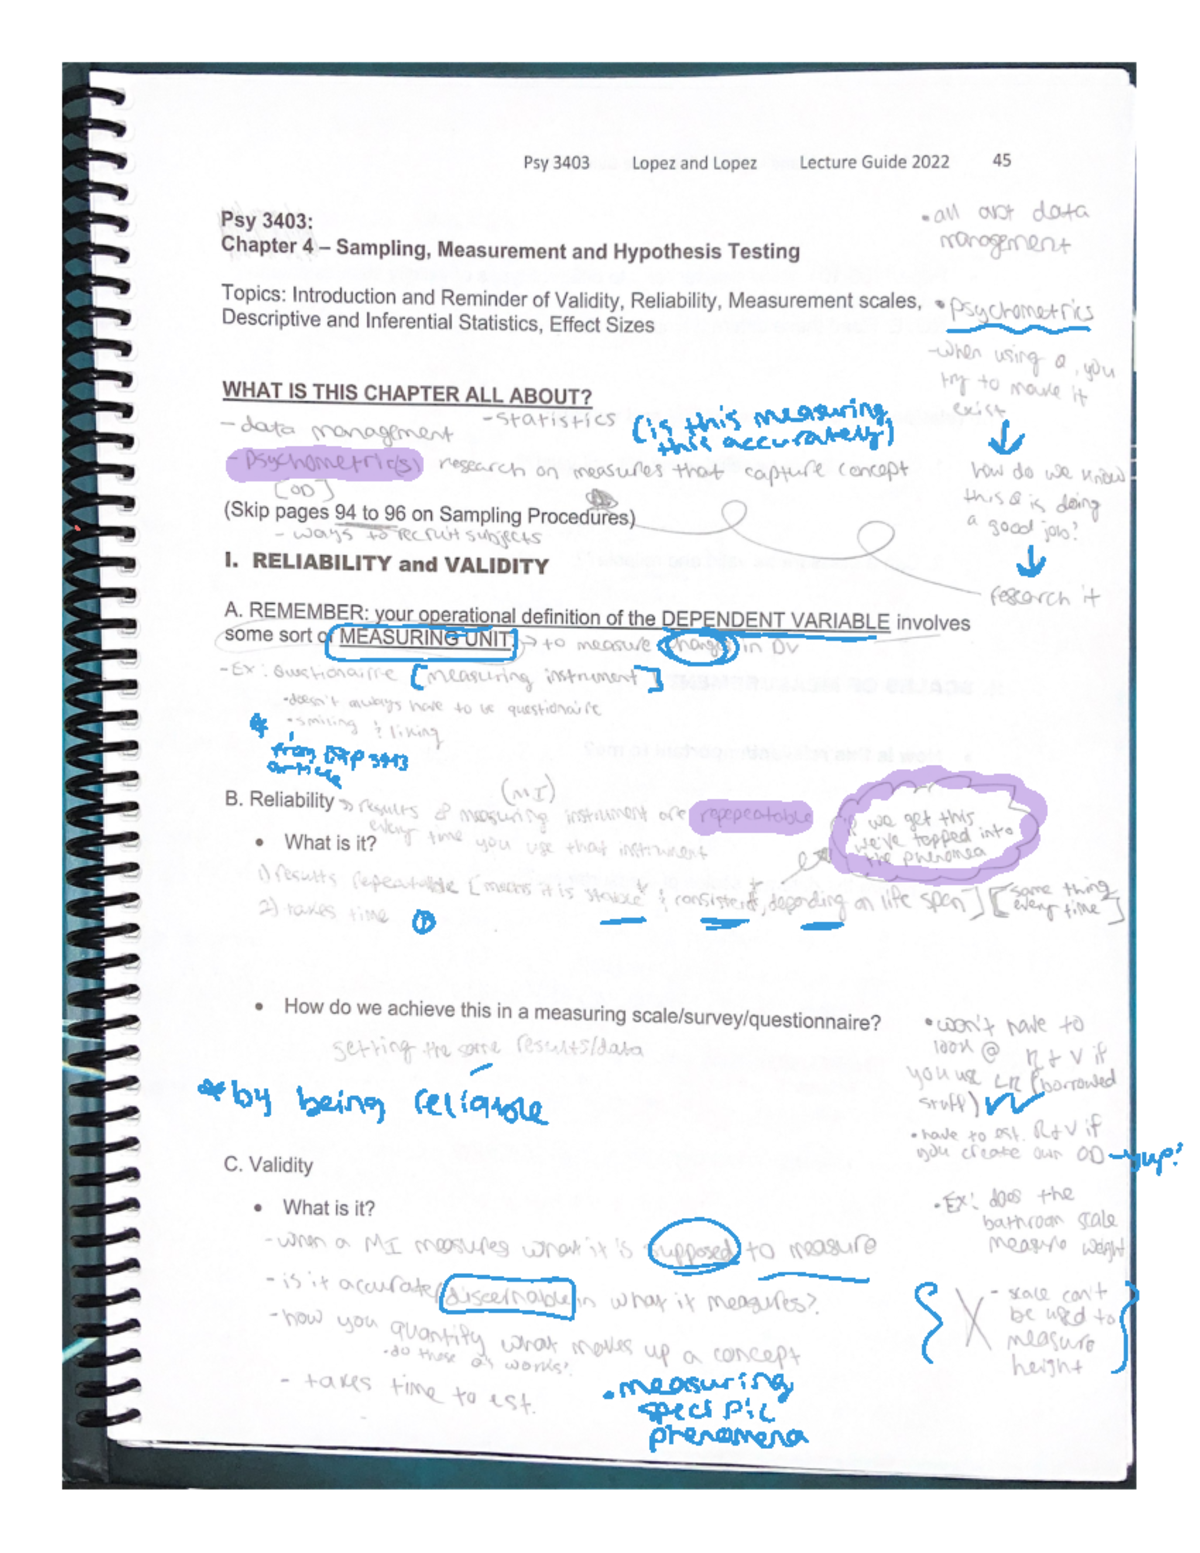 Psy 3403 Lopez and Lopez Lecture Guide 2022 45
Psy 3403:
Chapter 4 – Sampling, Measurement and Hypothesis Testing
• all abt data
management
Topics: Introduction and Reminder of Validity, Reliability, Measurement scales,
Descriptive and Inferential Statistics, Effect Sizes
• Psychometrics
- when using a , you
try to make it
exist
how do we know
this Q is doing
a good job?
research it
WHAT IS THIS CHAPTER ALL ABOUT?
- data management - statistics
(is this measuring
this accurately)
- Psychometric(s) research on measures that capture concept
[OD]
(Skip pages 94 to 96 on Sampling Procedures)
- ways to recruit subjects
I. RELIABILITY and VALIDITY
A. REMEMBER: your operational definition of the DEPENDENT VARIABLE involves
some sort of MEASURING UNIT → to measure change in DV
- Ex: Questionairre [measuring instrument]
• doesn't always have to be questionaire
• smiling & liking
* from EXP 3413
article
B. Reliability » results of measuring instrument are repeatable
(MI)
every time you use that instrument
if we get this
we've tapped into
the phenomea
• What is it?
1) results repeatable [means it is stable & consistent, depending on life span] [same thing
every time]
2) takes time
• How do we achieve this in a measuring scale/survey/questionnaire?
getting the same results/data
* by being reliable
• won't have to
100% @ R + V if
you use LR (borrowed
stuff)
• have to est. R+V if
you create our OD - yup!
C. Validity
• What is it?
- when a MI measures what it is supposed to measure
- is it accurate/discernable in what it measures?
- how you quantify what makes up a concept
• do these work?
- takes time to est.
• measuring
specific
phenomena
• Ex: does the
bathroom scale
measure weight
- scale can't
be used to
measure
height